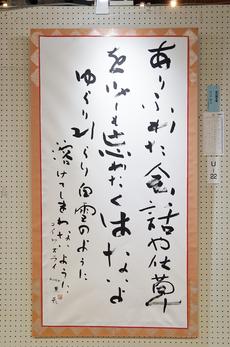 ありふれた会話や仕草
を少しも忘れたくはないよ
ゆらりひらり白雪のように
溶けてしまわないように
U-22